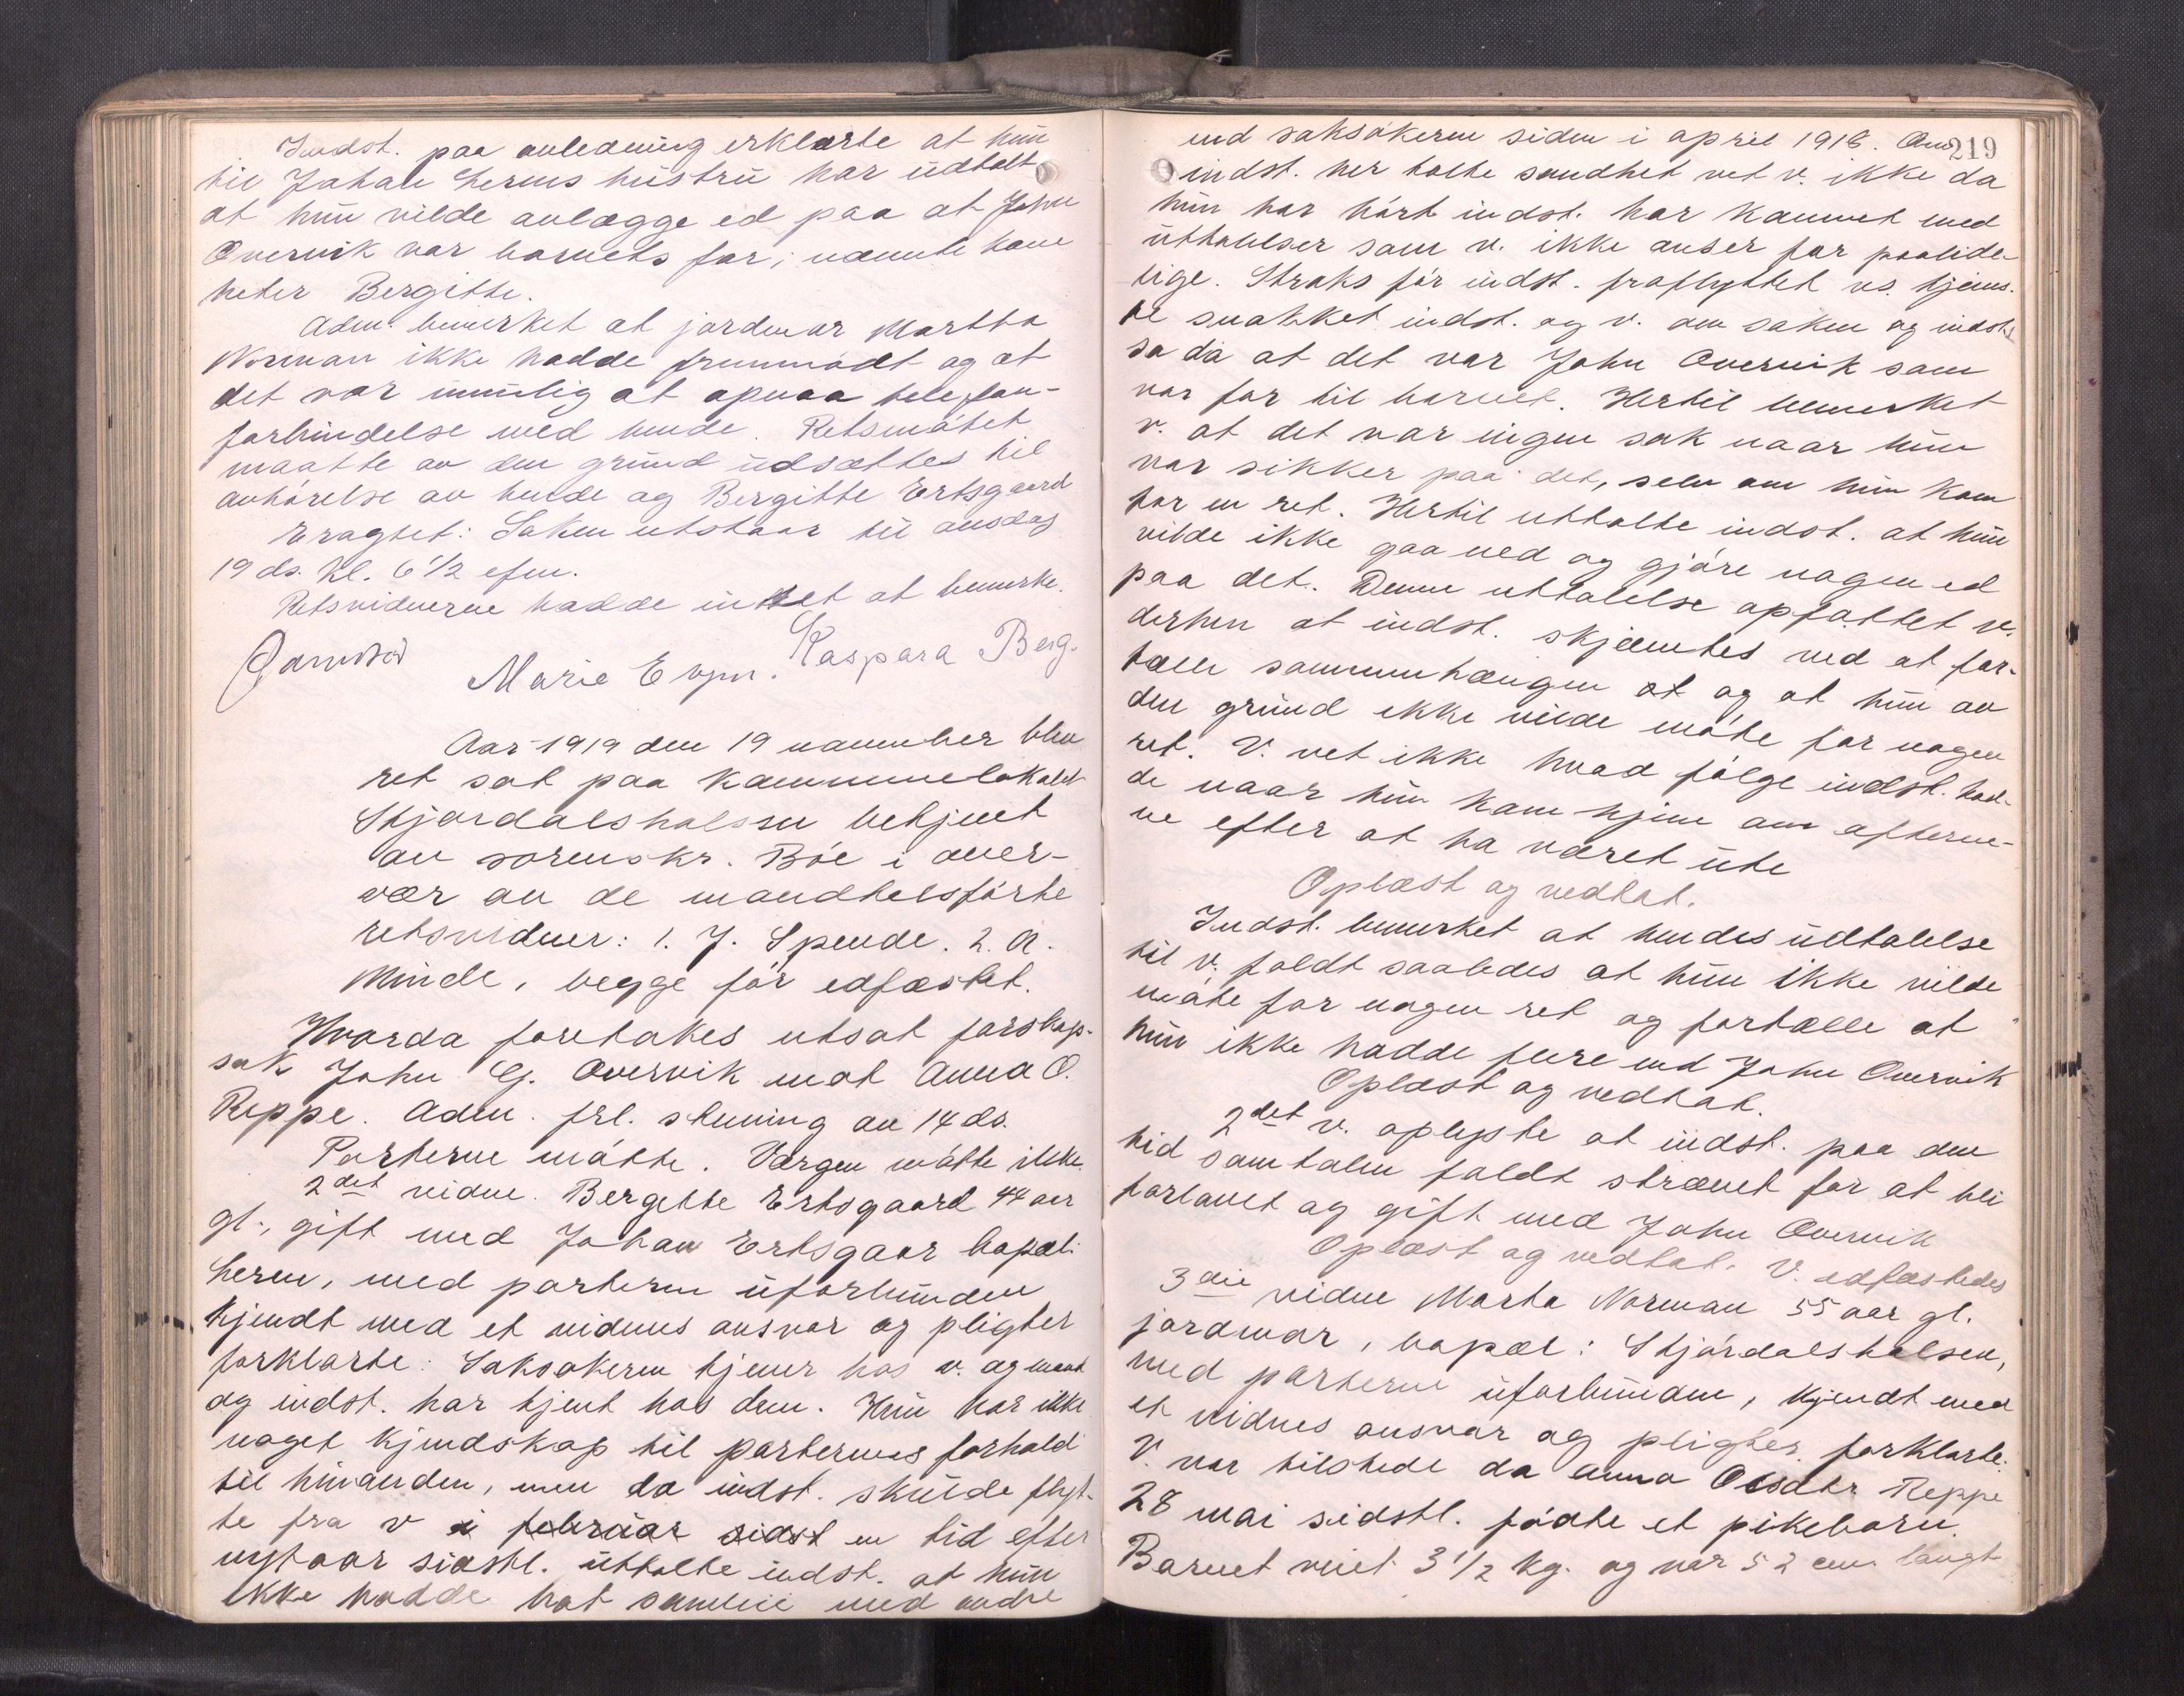 Indst. paa anledning erklærte at hun
til Johan Lerens hustru har udtalt
at hun vilde avlægge ed paa at John
Overvik var barnets far; nævnte kone
heter Bergitte.
Adm. bemerket at jordmor Martha
Norman ikke hadde fremmødt og at
det var umulig at opnaa telefon-
forbindelse med hende. Retsmøtet
maatte av den grund udsættes til
avhørelse av hende og Bergitte Ertsgaard
Eragtet: Saken utstaar til onsdag
19 ds. kl. 6 1/2 efm.
Retsvidnerne hadde intet at bemerke.
Marie Evjen. Kaspara Berg.
Aar 1919 den 19 november blev
ret sat paa kommunelokalet
Stjørdalshalsen betjent
av sorenskr. Böe i over-
vær av de mandtelsførte
retsvidner: 1. J. Spende. 2. A.
Minde, begge før edfæstet.
Hvorda foretakes utsat farskaps-
sak John G. Overvik mot Anna O.
Reppe. Adm. frl. stevning av 14 ds.
Parterne møtte. Værgen møtte ikke.
2det vidne. Bergitte Ertsgaard 44 aar
gl., gift med Johan Ertsgaar bopæl:
Leren, med parterne uforbunden
kjendt med et vidnes ansvar og pligter
forklarte: Saksøkeren tjener hos v. og mand
og indst. har tjent hos dem. Hun har ikke
noget kjendskap til parternes forhold
til hinanden, men da indst. skulde flyt-
te fra v i februar sidst en tid efter
nytaar sidstl. uttalte indst. at hun
ikke hadde hat samleie med andre
219
end saksøkeren siden i april 1918. Om
indst. her talte sandhet vet v. ikke da
hun har hørt indst. har kommet med
uttalelser som v. ikke anser for paalide-
lige. Straks før indst. fraflyttet vs. tjenes-
te snakket indst. og v. om saken og indst.
sa da at det var John Overvik som
var far til barnet. Hertil bemerket
v. at det var ingen sak naar hun
var sikker paa det, selv om hun kom
for en ret. Hertil uttalte indst. at hun
vilde ikke gaa ned og gjøre nogen ed
paa det. Denne uttalelse opfattet v.
derhen at indst. skjæmtes ved at for-
tælle sammenhængen at og at hun av
den grund ikke vilde møte for nogen
ret. V. vet ikke hvad følge indst. had-
de naar hun kom hjem om aftene-
ne efter at ha været ute
Oplæst og vedtat.
Indst. bemerket at hendes udtalelse
til v. faldt saaledes at hun ikke vilde
møte for nogen ret og fortælle at
hun ikke hadde flere end John Overvik
Oplæst og vedtat.
2det v. oplyste at indst. paa den
tid samtalen faldt strævet for at bli
forlovet og gift med John Overvik
Oplæst og vedtat. V. edfæstedes
3die vidne Marta Norman 55 aar gl.
jordmor, bopæl: Stjørdalshalsen,
med parterne uforbunden, kjendt med
et vidnes ansvar og pligter forklarte:
V. var tilstede da Anna Olsdtr Reppe
28 mai sidstl. fødte et pikebarn.
Barnet veiet 3 1/2 kg. og var 52 cm. langt